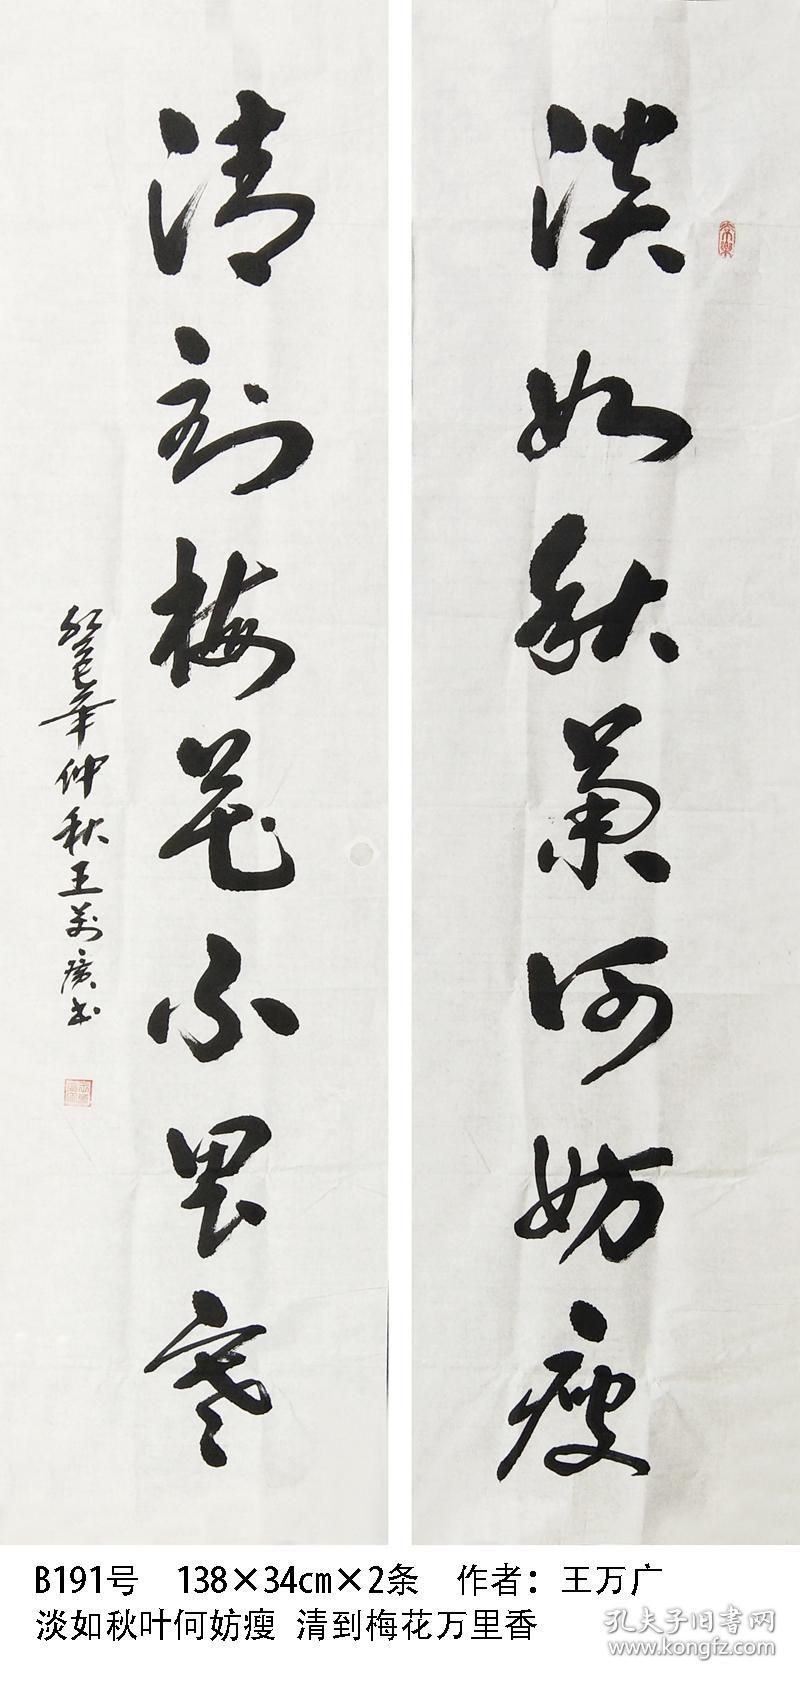 淡如秋菊何妨瘦
清到梅花不畏寒
癸巳年仲秋王万广书
B191号 138×34cm×2条 作者：王万广
淡如秋叶何妨瘦 清到梅花万里香
孔夫子旧书网
www.kongfz.com